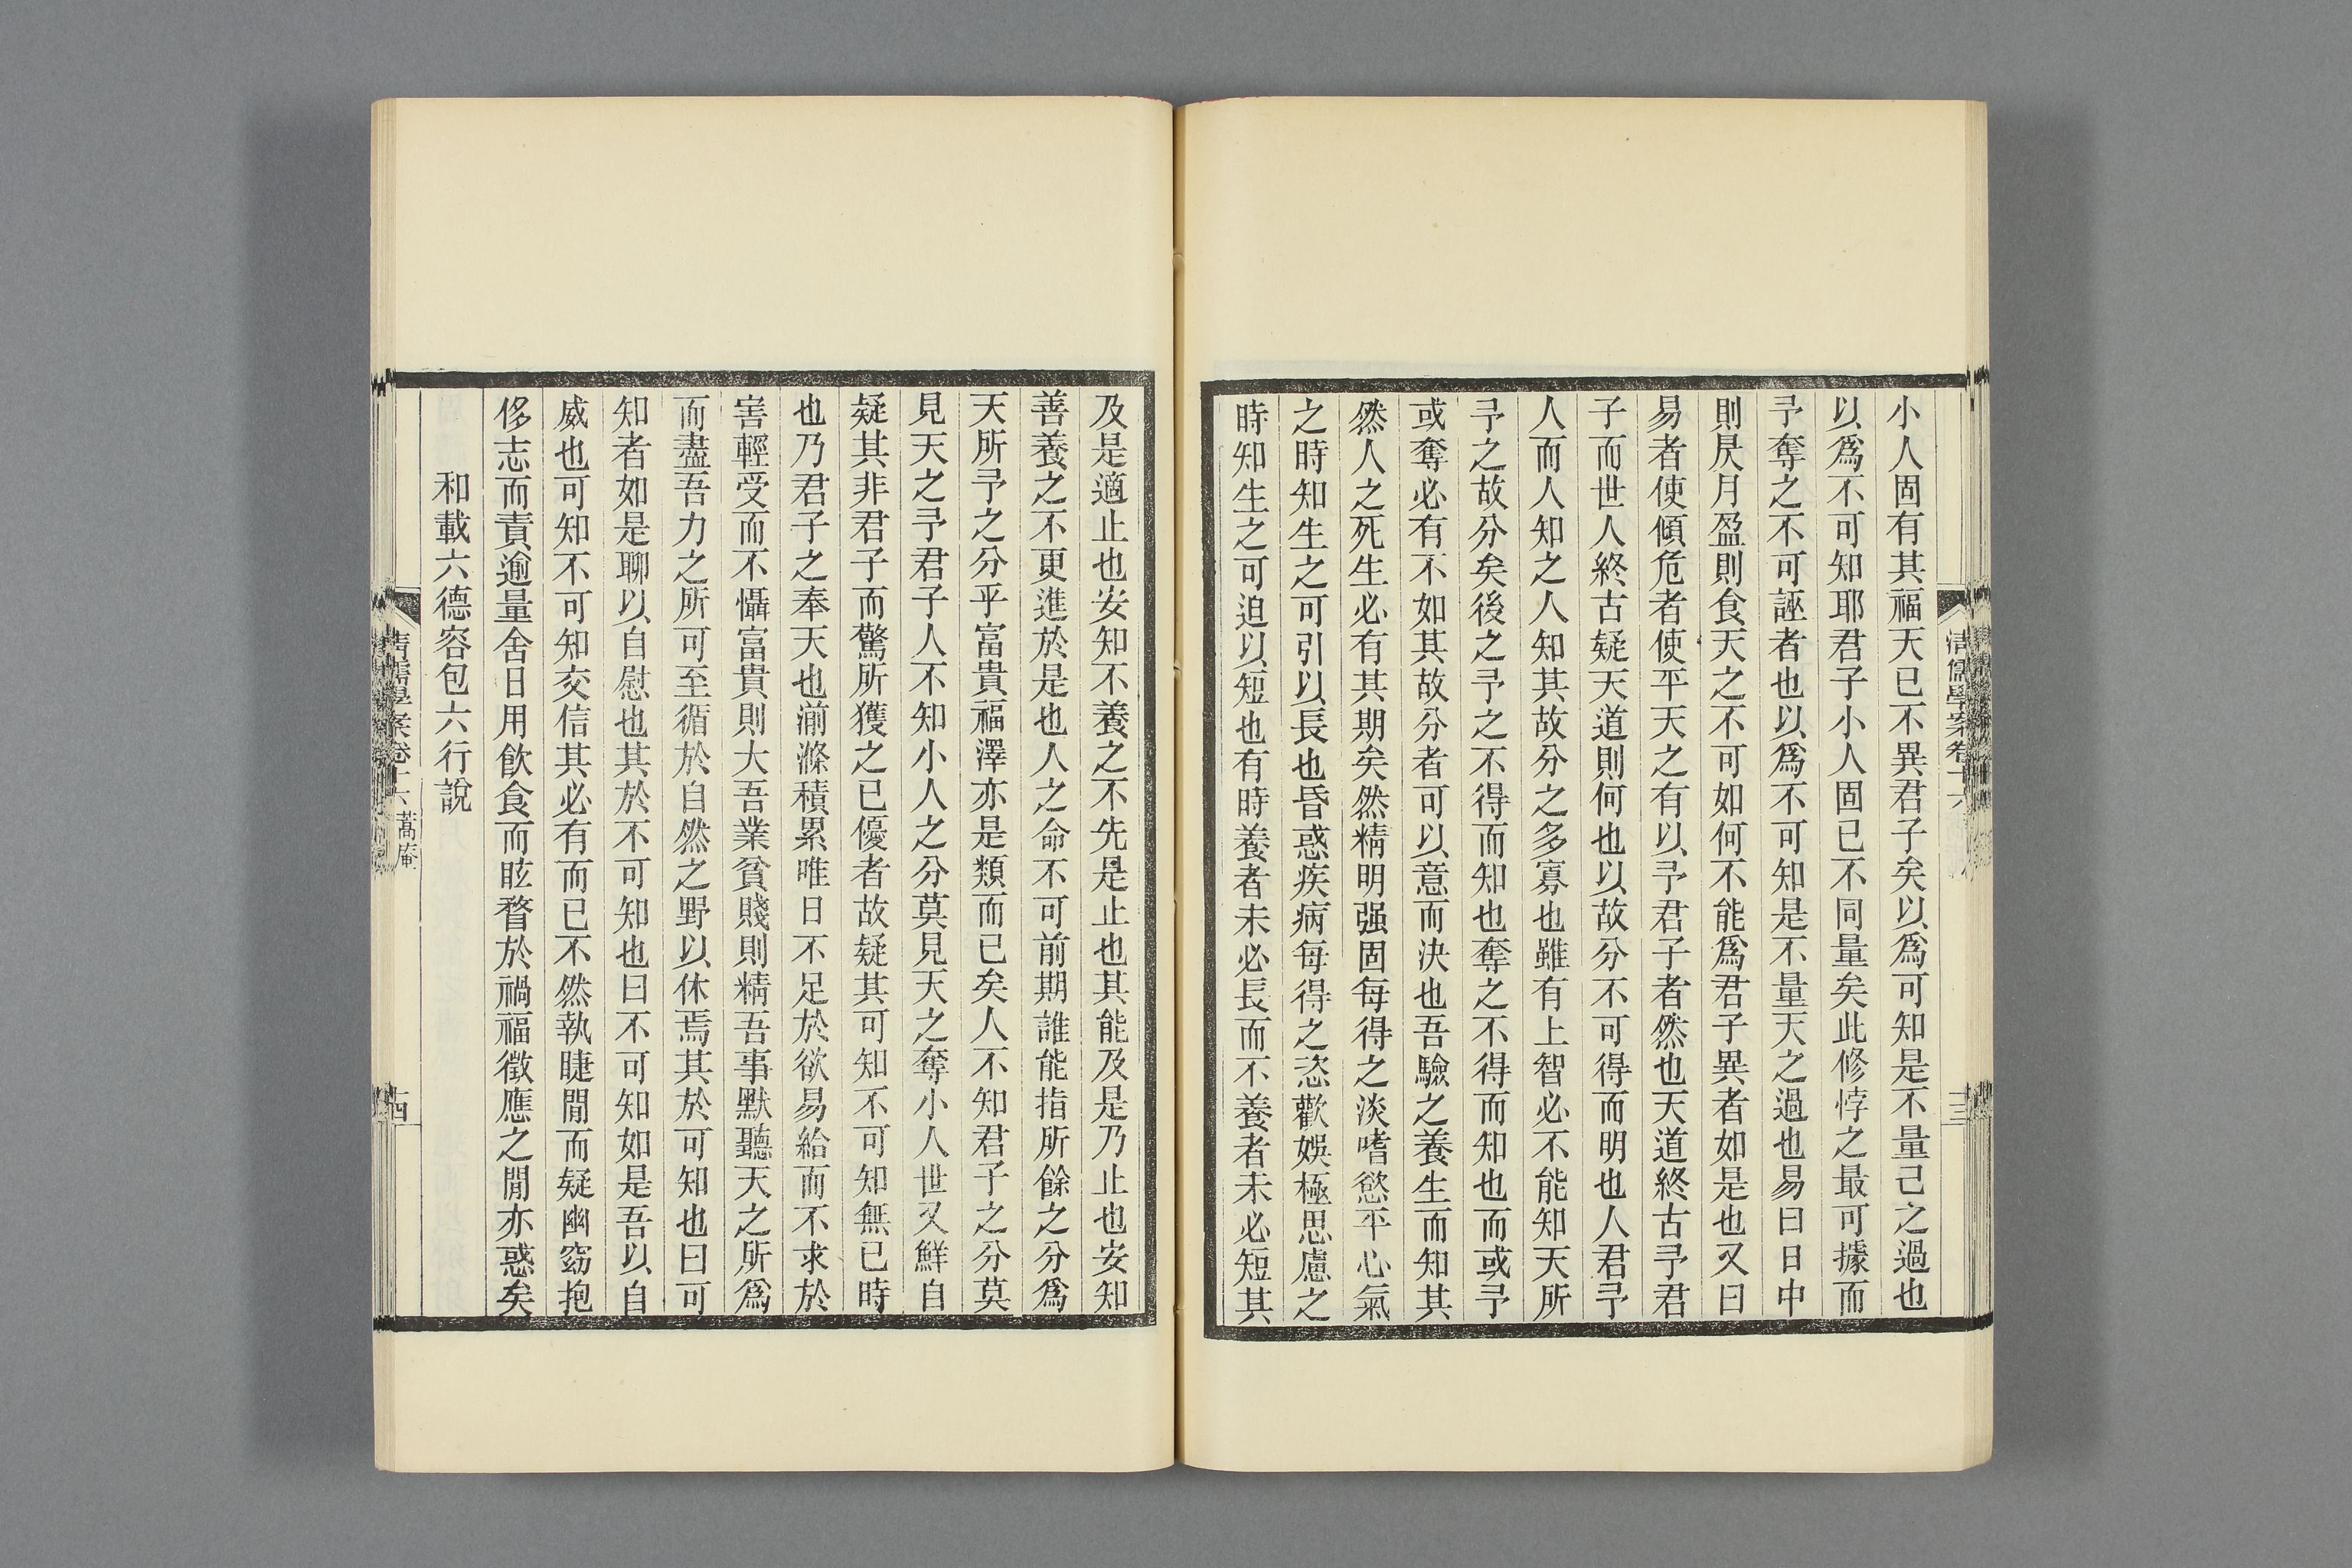 小人固有其福天已不異君子矣以爲可知是不量己之過也
以爲不可知耶君子小人固已不同量矣此修悖之最可據而
予奪之不可誣者也以爲不可知是不量天之過也易曰日中
則昃月盈則食天之不可如何不能爲君子異者如是也又曰
易者使傾危者使平天之有以予君子者然也天道終古予君
子而世人終古疑天道則何也以故分不可得而明也人君予
人而人知之人知其故分之多寡也雖有上智必不能知天所
予之故分矣後之予之不得而知也奪之不得而知也而或予
或奪必有不如其故分者可以意而決也吾驗之養生而知其
然人之死生必有其期矣然精明强固每得之淡嗜慾平心氣
之時知生之可引以長也昏惑疾病每得之恣歡娛極思慮之
時知生之可迫以短也有時養者未必長而不養者未必短其
及是適止也安知不養之不先是止也其能及是乃止也安知
善養之不更進於是也人之命不可前期誰能指所餘之分爲
天所予之分乎富貴福澤亦是類而已矣人不知君子之分莫
見天之予君子人不知小人之分莫見天之奪小人世又鮮自
疑其非君子而驚所獲之已優者故疑其可知不可知無已時
也乃君子之奉天也湔滌積累唯日不足於欲易給而不求於
害輕受而不懾富貴則大吾業貧賤則精吾事默聽天之所爲
而盡吾力之所可至循於自然之野以休焉其於可知也曰可
知者如是聊以自慰也其於不可知也曰不可知如是吾以自
威也可知不可知交信其必有而已不然執睫閒而疑幽窈抱
侈志而責逾量舍日用飮食而眩瞀於禍福徵應之閒亦惑矣
和載六德容包六行說
清儒學案卷十六
一三
清儒學案卷十六 蒿庵
一四